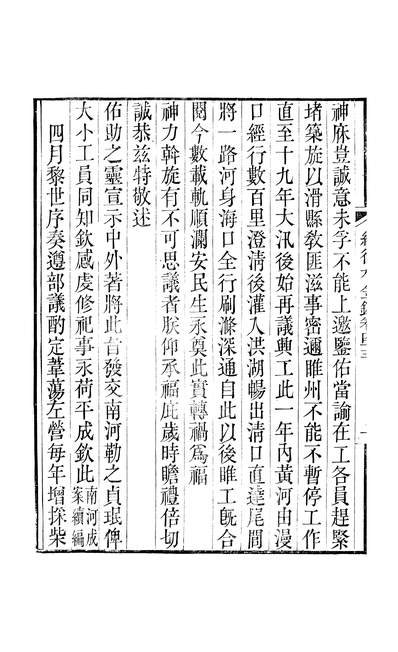 神庥豈誠意未孚不能上邀鑒佑當諭在工各員趕緊
堵築旋以滑縣敎匪滋事密邇睢州不能不暫停工作
直至十九年大汛後始再議興工此一年內黃河由漫
口經行數百里澄淸後灌入洪湖暢出淸口直達尾閭
將一路河身海口全行刷滌深通自此以後睢工旣合
閱今數載軌順瀾安民生永奠此實轉禍爲福
神力斡旋有不可思議者朕仰承福庇歲時瞻禮倍切
誠恭兹特敬述
佑助之靈宣示中外著將此旨發交南河勒之貞珉俾
大小工員同知欽感虔修祀事永荷平成欽此南河成
案續編
四月黎世序奏遵部議酌定葦蕩左營每年增採柴